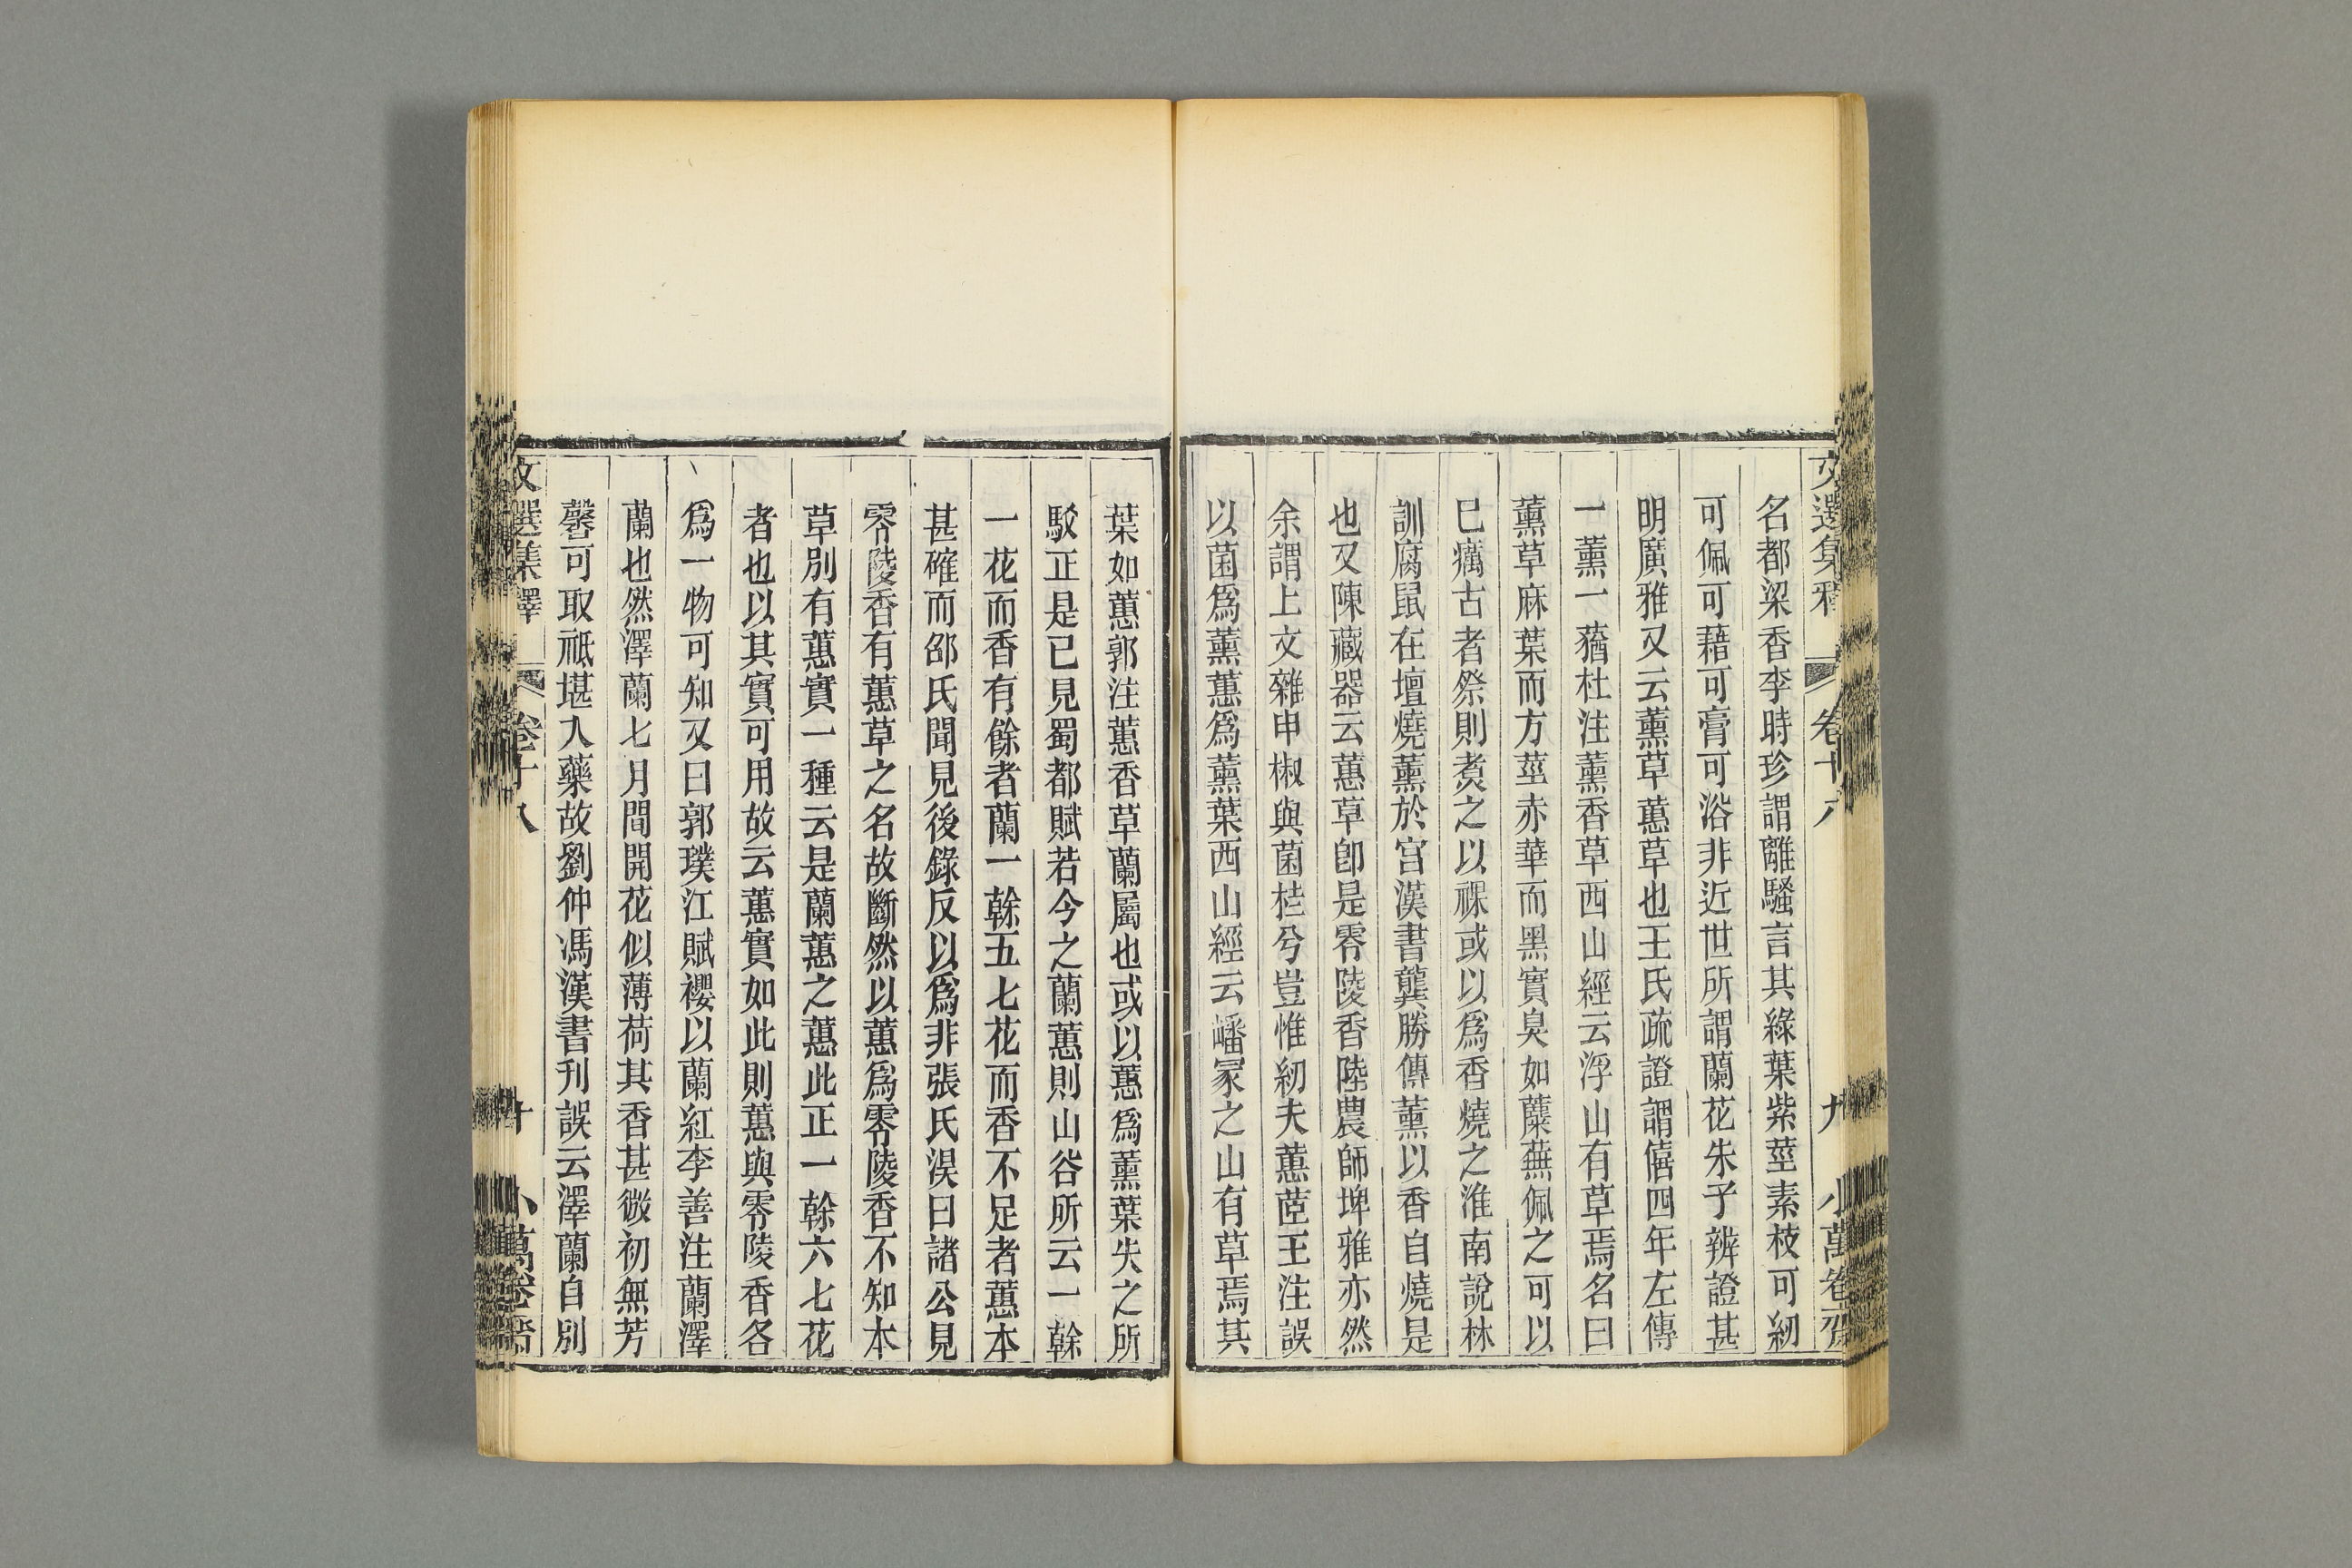 文選集釋 卷十八 九 小萬卷齋
名都梁香李時珍謂離騷言其綠葉紫莖素枝可紉
可佩可藉可膏可浴非近世所謂蘭花朱子辨證甚
明廣雅又云薰草蕙草也王氏疏證謂僖四年左傳
一薰一蕕杜注薰香草西山經云浮山有草焉名曰
薰草麻葉而方莖赤華而黑實臭如蘪蕪佩之可以
已癘古者祭則煑之以祼或以為香燒之淮南說林
訓腐鼠在壇燒薰於宮漢書龔勝傳薰以香自燒是
也又陳藏器云蕙草卽是零陵香陸農師埤雅亦然
余謂上文雜申椒與菌桂兮豈惟紉夫蕙茝王注誤
以菌爲薰蕙爲薰葉西山經云嶓冢之山有草焉其
葉如蕙郭注蕙香草蘭屬也或以蕙爲薰葉失之所
駮正是已見蜀都賦若今之蘭蕙則山谷所云一榦
一花而香有餘者蘭一榦五七花而香不足者蕙本
甚確而邵氏聞見後錄反以爲非張氏淏曰諸公見
零陵香有蕙草之名故斷然以蕙爲零陵香不知本
草別有蕙實一種云是蘭蕙之蕙此正一榦六七花
者也以其實可用故云蕙實如此則蕙與零陵香各
爲一物可知又曰郭璞江賦櫻以蘭紅李善注蘭澤
蘭也然澤蘭七月間開花似薄荷其香甚微初無芳
馨可取祗堪入藥故劉仲馮漢書刊誤云澤蘭自別
文選集釋 卷十八 十 小萬卷齋